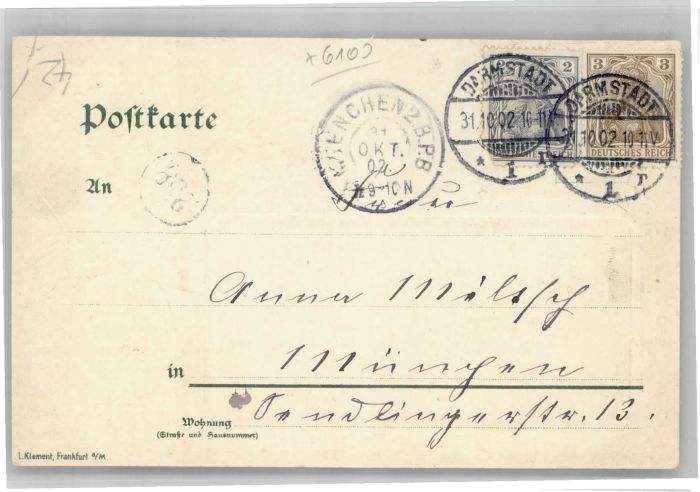 +6100
2 3
Postkarte
DARMSTADT
DARMSTADT
MUENCHEN 2 B.P.B
31
OKT.
02
9-10 N
31.10.02. 10-11V.
31.10.02. 10-11.V.
DEUTSCHES REICH
* 1 n
* 1 n
An
Frau
Anna Miltsch
in München
Wohnung
(Straße und Hausnummer)
Sendlingerstr. 13.
L. Klement, Frankfurt a/M.